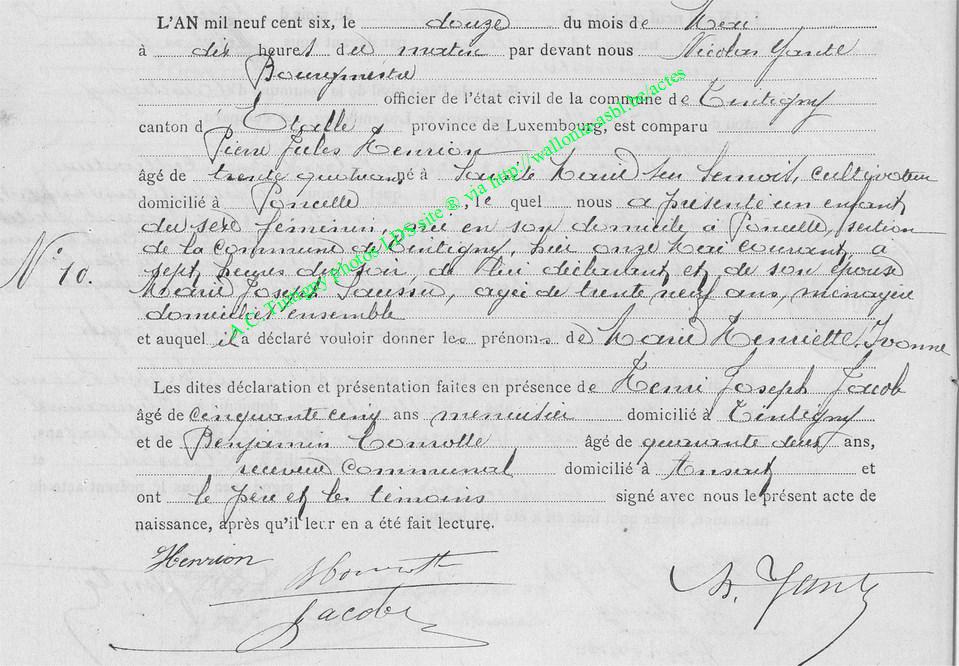 L'AN mil neuf cent six, le douze du mois de Mai
à dix heures du matin par devant nous Nicolas Yante
Bourgmestre
officier de l'état civil de la commune de Tintigny
canton d'Etalle province de Luxembourg, est comparu
Pierre Jules Henrion
âgé de trente quatre ans, né à Sainte Marie sur Semois, cultivateur
domicilié à Poncelle, le quel nous a présenté un enfant
du sexe féminin, née en son domicile à Poncelle, section
de la commune de Tintigny, hier onze Mai courant, à
N° 10.
sept heures du soir, de lui déclarant et de son épouse
Marie Joseph, agée de trente neuf ans, ménagère
domiciliés ensemble
et auquel il a déclaré vouloir donner les prénoms de Marie Henriette, Yvonne
Les dites déclaration et présentation faites en présence de Henri Joseph Jacob
âgé de cinquante cinq ans menuisier domicilié à Tintigny
et de Benjamin âgé de quarante deux ans,
receveur communal domicilié à Ansart et
ont le père et les témoins signé avec nous le présent acte de
naissance, après qu'il leur en a été fait lecture.
Henrion
Jacob
N. Yante
A.C. Tintigny photos LDS site ® via http://wallonia-asbl.be/actes